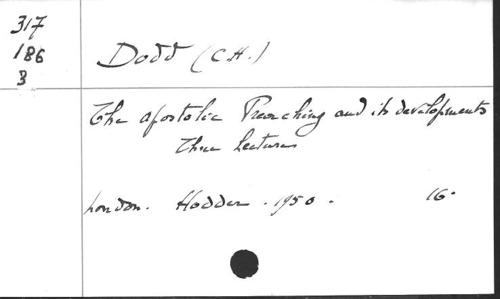 317
186
3
Dodd (C.H.)
The apostolic Preaching and its developments
Three Lectures
London. Hodder. 1950.
16.